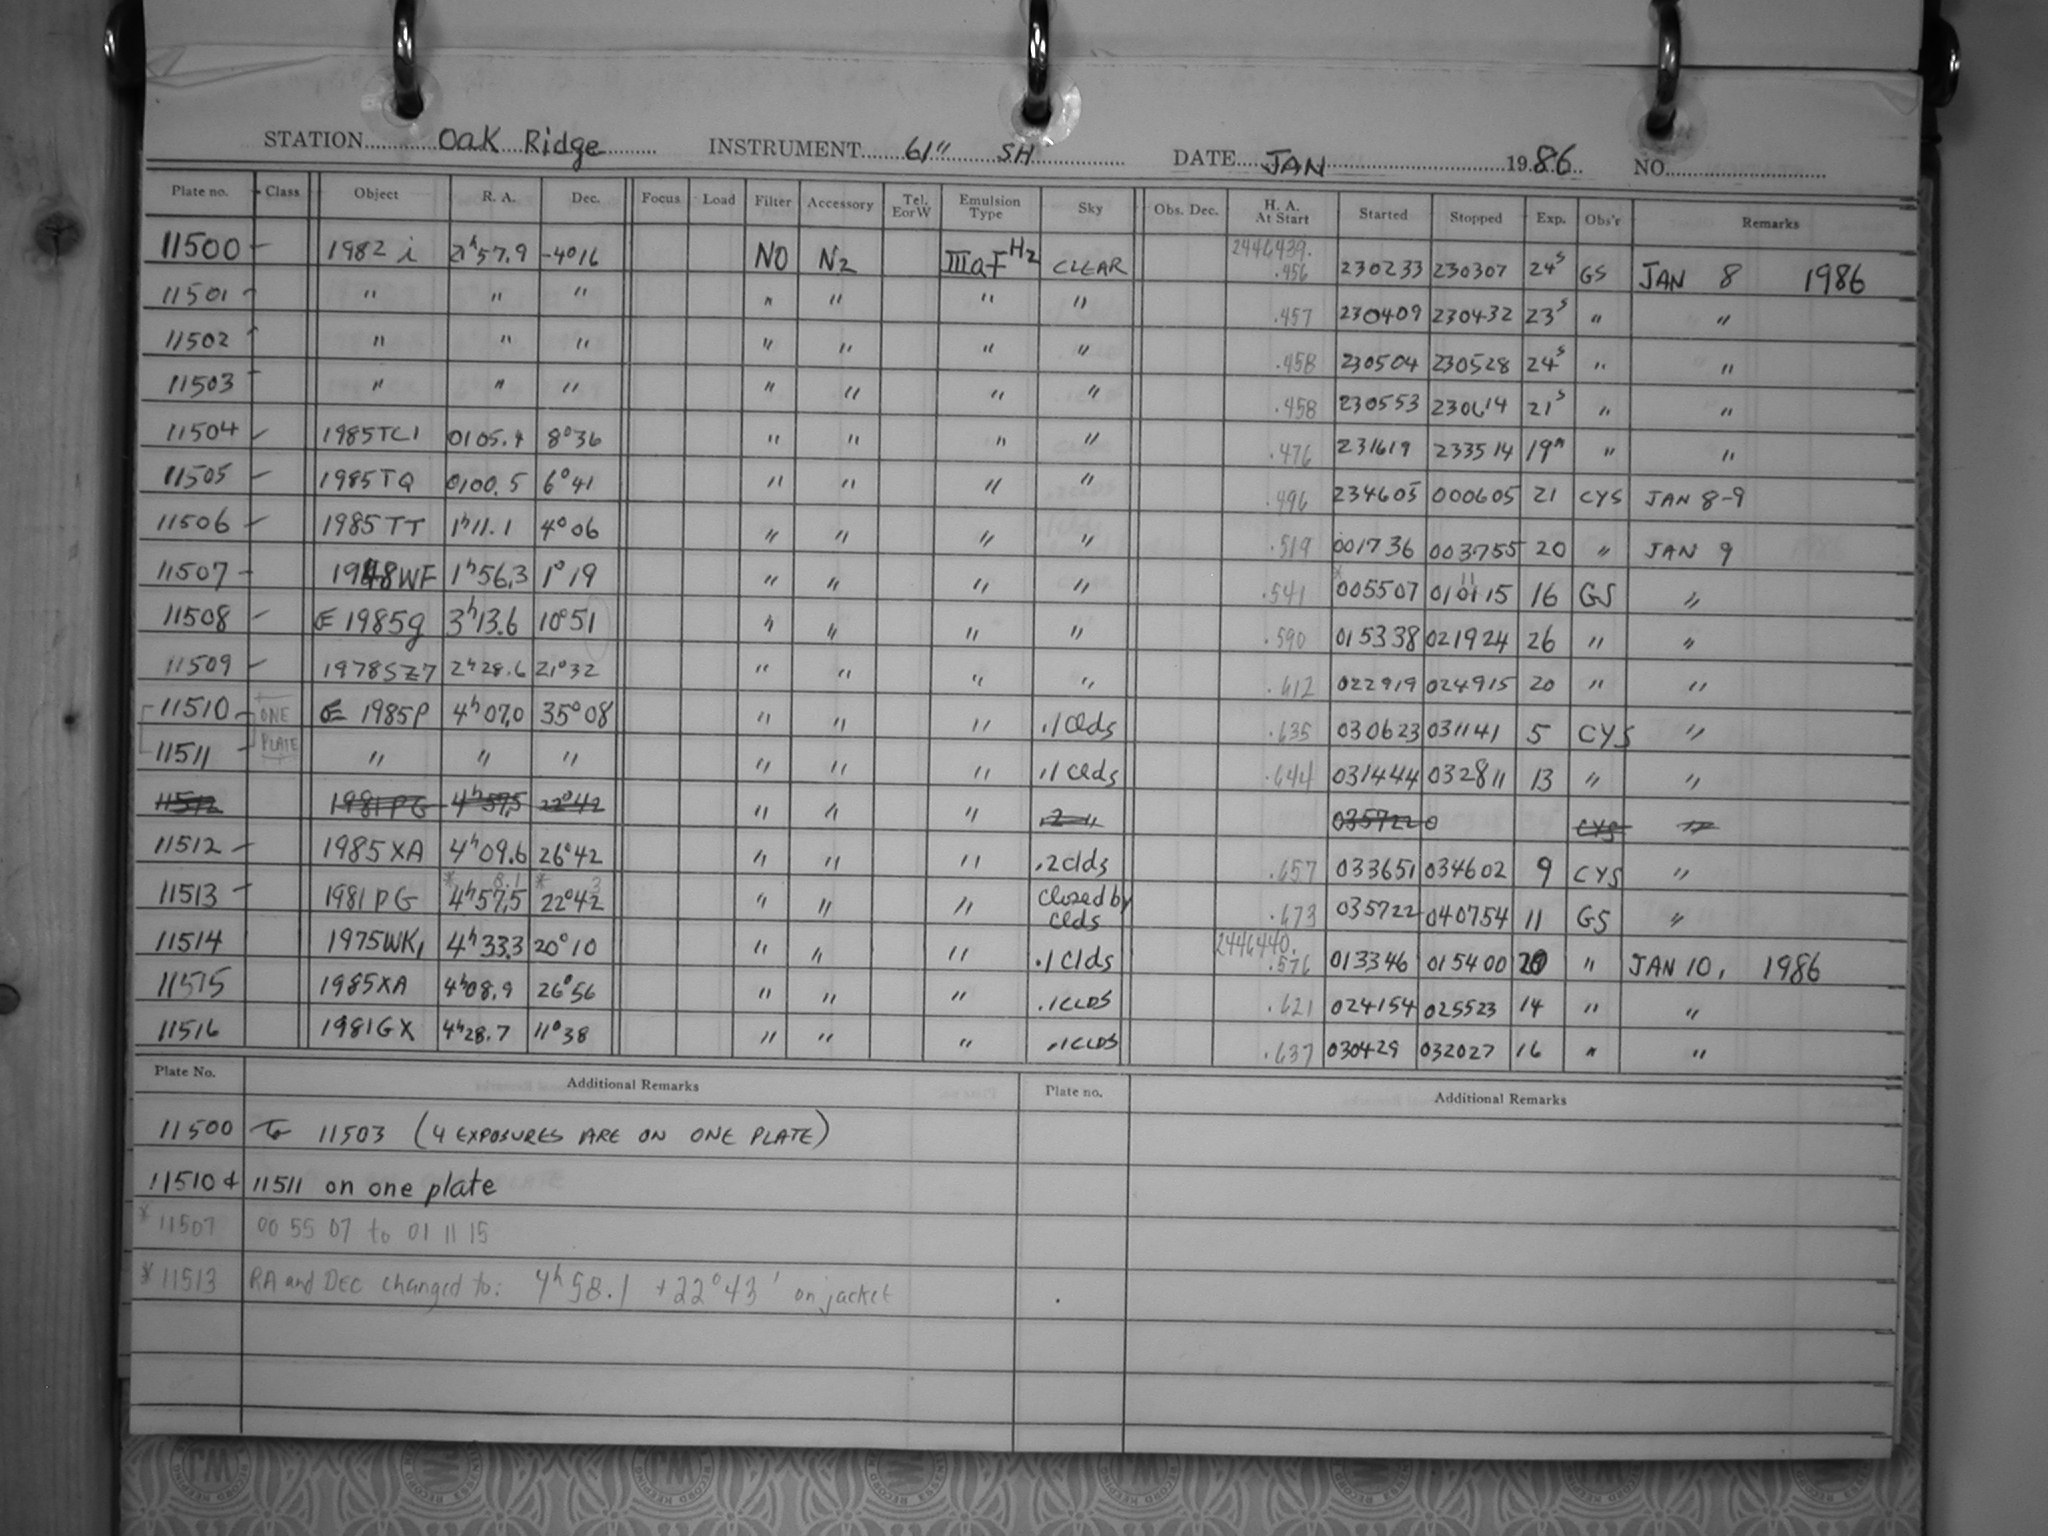 STATION Oak Ridge INSTRUMENT 61" SH DATE JAN 1986 NO.
Plate no. Class Object R. A. Dec. Focus Load Filter Accessory Tel. EorW Emulsion Type Sky Obs. Dec. H. A. At Start Started Stopped Exp. Obs'r Remarks
11500 – 1982 i 2h57.9 -4°16 NO N2 IIIaF H2 CLEAR 2446439. .456 230233 230307 24s GS JAN 8 1986
11501 – " " " " " " " .457 230409 230432 23s " "
11502 – " " " " " " " .458 230504 230528 24s " "
11503 – " " " " " " " .458 230553 230614 21s " "
11504 – 1985TC1 0105.4 8°36 " " " " .476 231619 233514 19m " "
11505 – 1985TQ 0100.5 6°41 " " " " .496 234605 000605 21 CYS JAN 8-9
11506 – 1985TT 1h11.1 4°06 " " " " .519 001736 003755 20 " JAN 9
11507 – 1948WF 1h56.3 1°19 " " " " .541 *005507 010115 11 16 GS "
11508 – 1985g 3h13.6 10°51 " " " " .590 015338 021924 26 " "
11509 – 1978SZ7 2h28.6 21°32 " " " " .612 022919 024915 20 " "
11510 – ONE 1985P 4h07.0 35°08 " " " .1 Clds .635 030623 031141 5 CYS "
11511 – PLATE " " " " " " .1 Clds .644 031444 032811 13 " "
11512 1981PG 4h57.5 22°42 " " " .2 " 035722 0 CYS "
11512 – 1985XA 4h09.6 26°42 " " " .2clds .657 033651 034602 9 CYS "
11513 – 1981PG *4h57.5 8.1 *22°42 3 " " " Closed by Clds .673 035722 040754 11 GS "
11514 1975WK1 4h33.3 20°10 " " " .1 Clds 2446440. .576 013346 015400 20 " JAN 10, 1986
11515 1985XA 4h08.9 26°56 " " " .1CLDS .621 024154 025523 14 " "
11516 1981GX 4h28.7 11°38 " " " .1CLDS .637 030429 032027 16 " "
Plate No. Additional Remarks Plate no. Additional Remarks
11500 To 11503 (4 EXPOSURES ARE ON ONE PLATE)
11510 & 11511 on one plate
*11507 00 55 07 to 01 11 15
*11513 RA and DEC changed to: 4h58.1 +22°43' on jacket